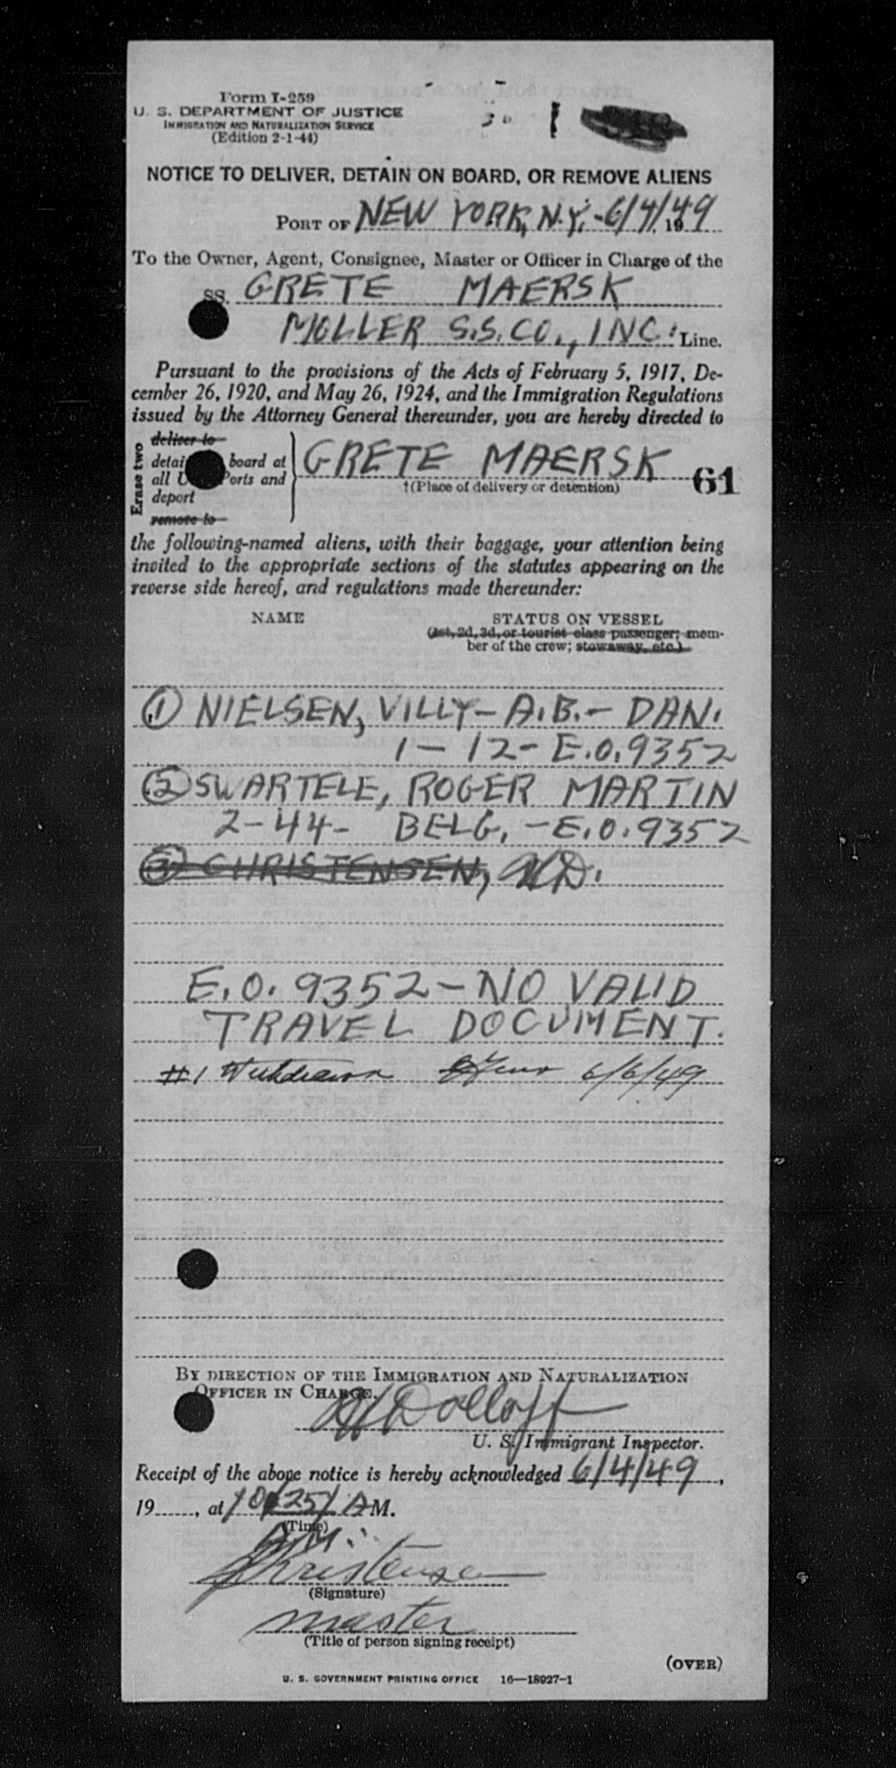 Form I-259
U. S. DEPARTMENT OF JUSTICE
IMMIGRATION AND NATURALIZATION SERVICE
(Edition 2-1-44)
NOTICE TO DELIVER, DETAIN ON BOARD, OR REMOVE ALIENS
PORT OF NEW YORK, N.Y. - 6/4/1949
To the Owner, Agent, Consignee, Master or Officer in Charge of the
SS. GRETE MAERSK
MOLLER S.S. CO., INC. Line.
Pursuant to the provisions of the Acts of February 5, 1917, De-
cember 26, 1920, and May 26, 1924, and the Immigration Regulations
issued by the Attorney General thereunder, you are hereby directed to
Erase two
deliver to
board at
all Ports and
deport
remove to
GRETE MAERSK
†(Place of delivery or detention)
61
the following-named aliens, with their baggage, your attention being
invited to the appropriate sections of the statutes appearing on the
reverse side hereof, and regulations made thereunder:
NAME STATUS ON VESSEL
(1st, 2d, 3d, or tourist class passenger; mem-
ber of the crew; stowaway, etc.)
① NIELSEN, VILLY - A.B. - DAN.
1 - 12 - E.O. 9352
② SWARTELE, ROGER MARTIN
2-44- BELG, - E.O. 9352
③ CHRISTENSEN,
E.O. 9352 - NO VALID
TRAVEL DOCUMENT.
#1 Withdrawn 6/6/49
BY DIRECTION OF THE IMMIGRATION AND NATURALIZATION
OFFICER IN CHARGE.
Dolloff
U. S. Immigrant Inspector.
Receipt of the above notice is hereby acknowledged 6/4/49,
19......, at 10/25/ A M.
(Time)
A.M.
Kristensen
(Signature)
master
(Title of person signing receipt)
(OVER)
U. S. GOVERNMENT PRINTING OFFICE 16—18927-1